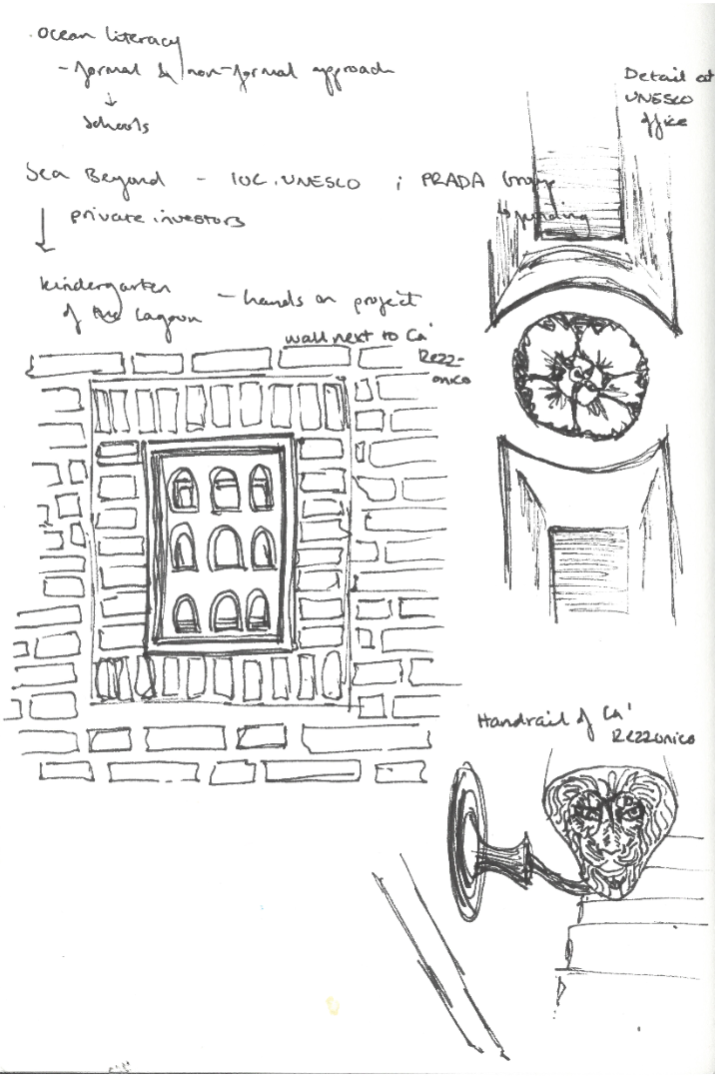 Ocean literacy
- formal & non-formal approach
↓
schools
Sea Beyond - IOC.UNESCO ; PRADA Group
↳ funding
↓ private investors
kindergarten
of the Lagoon - hands on project
wall next to Ca'
Rezz-
onico
Detail at
UNESCO
office
Handrail of Ca'
Rezzonico